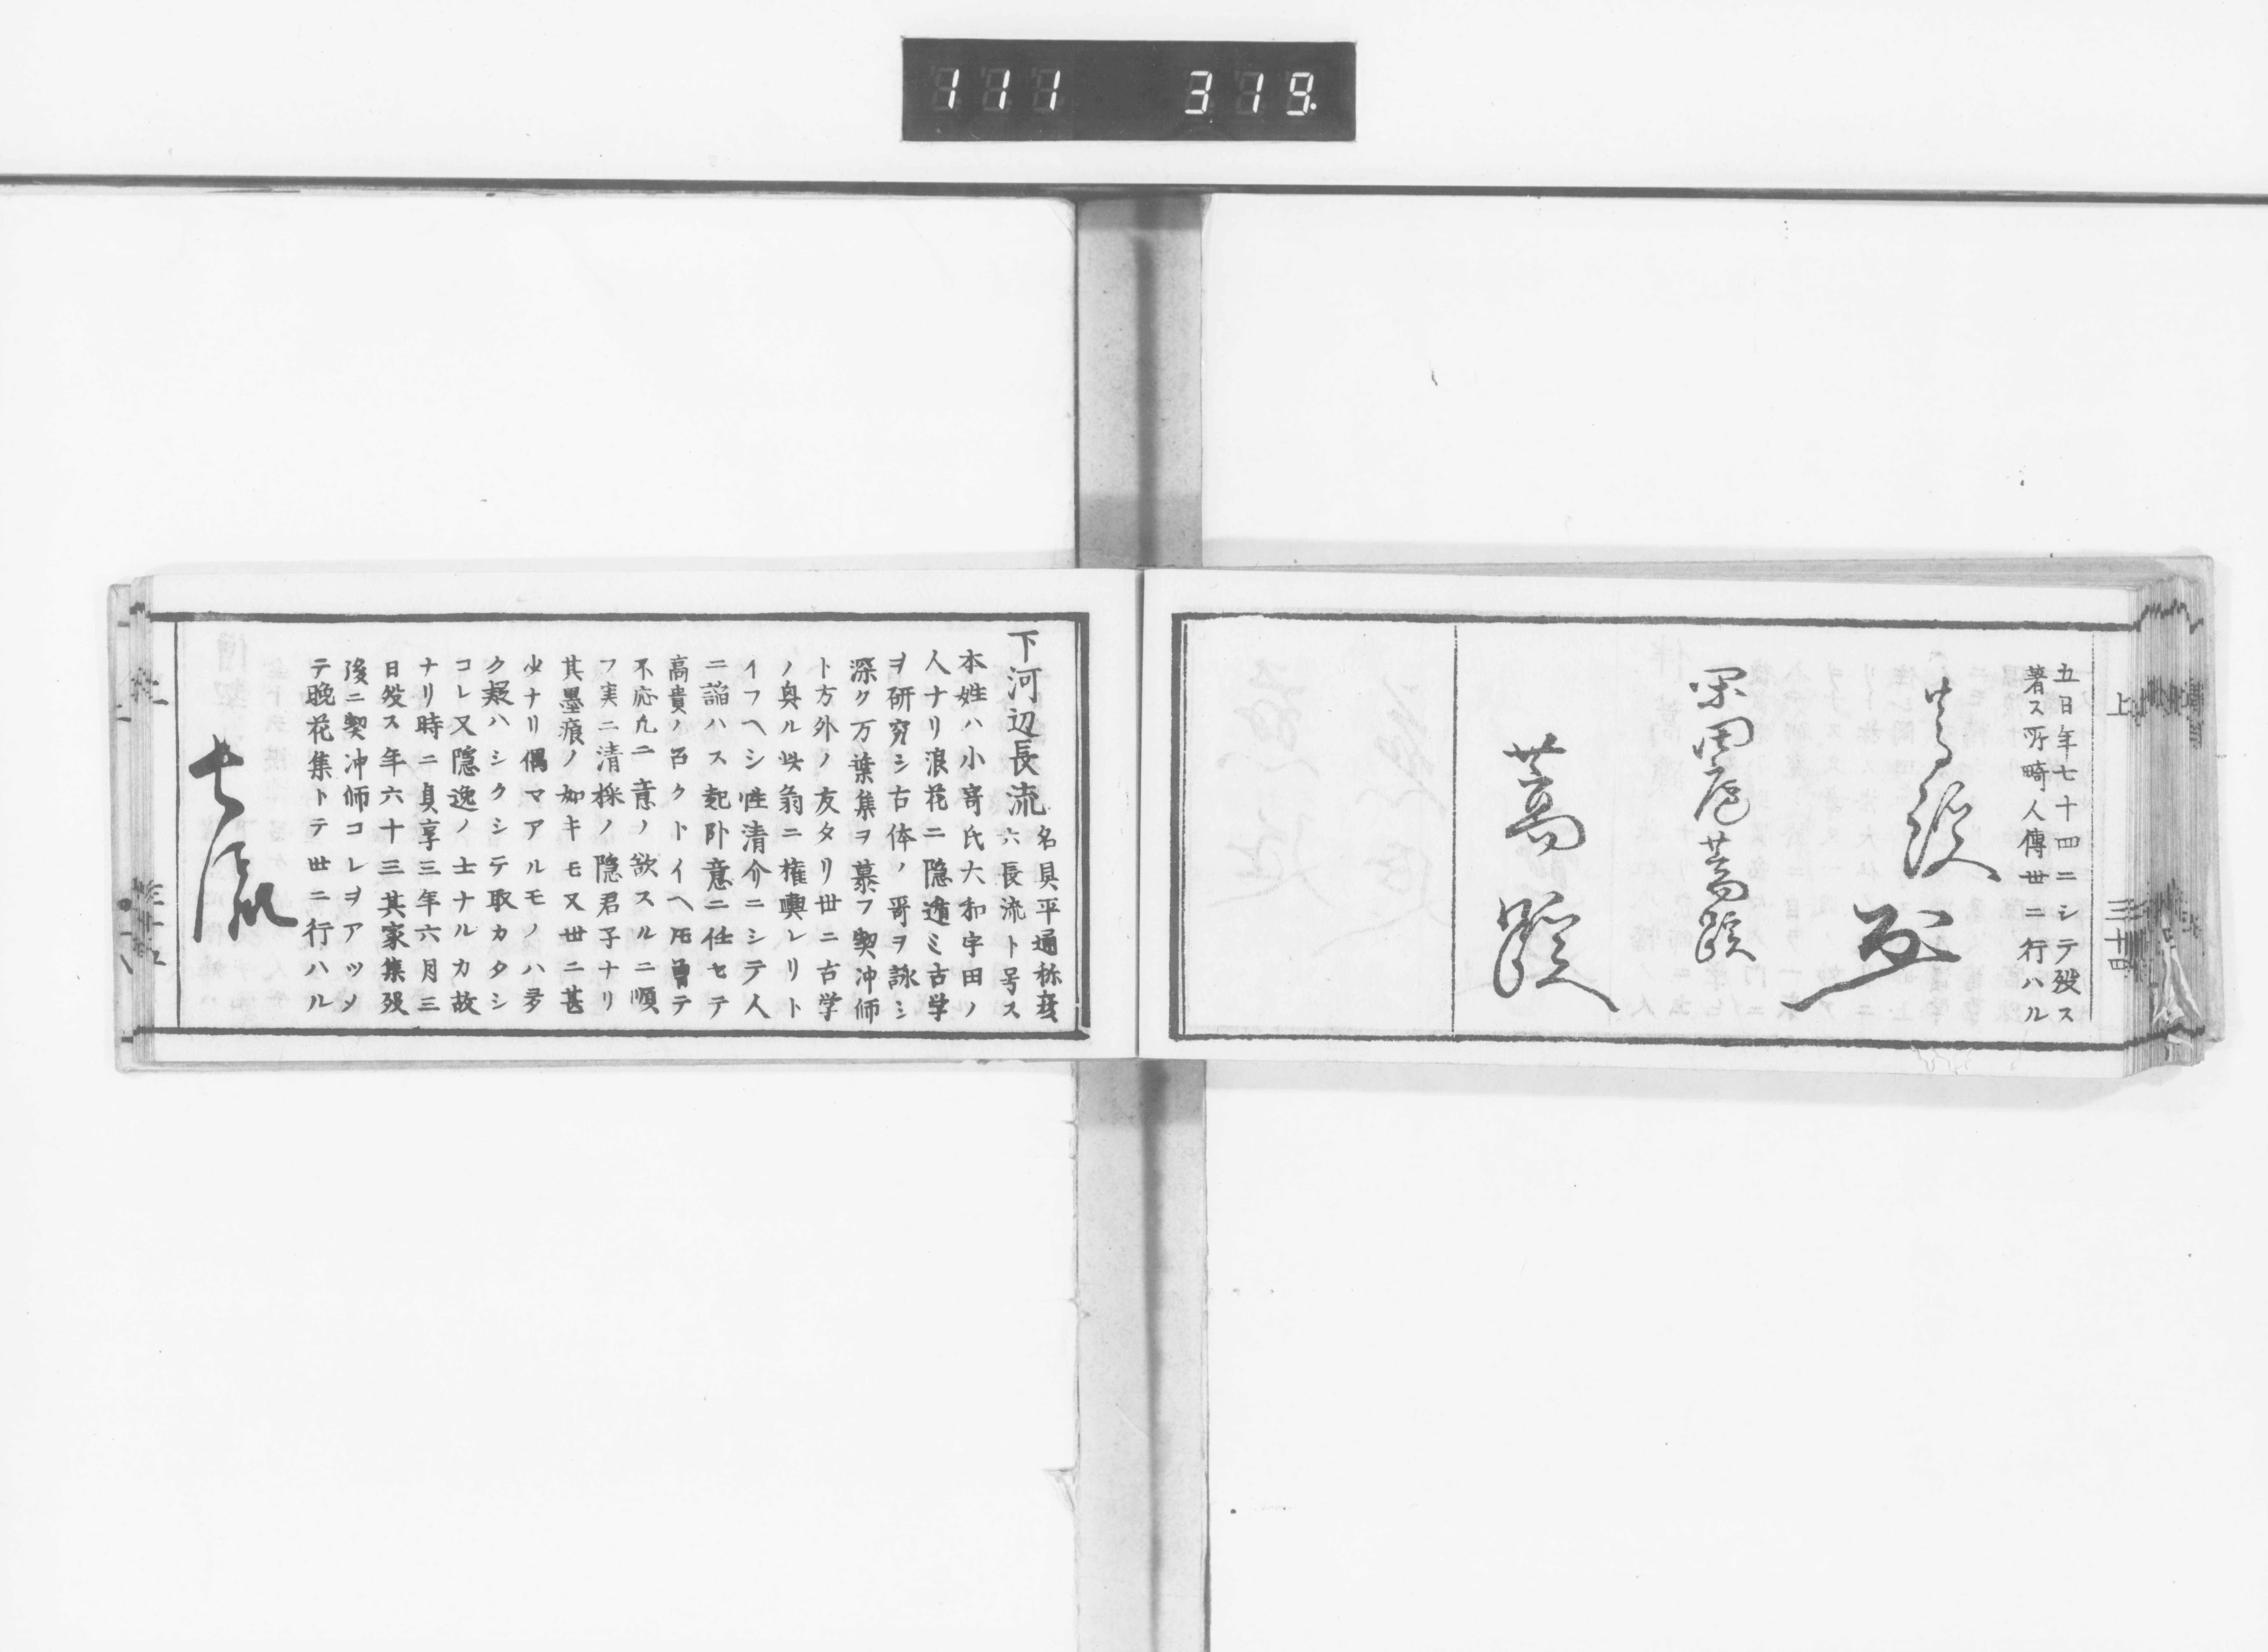 111 319
上
三十四
五日年七十四ニシテ歿ス
著ス所畸人傳世ニ行ハル
蒿蹊
閑田廬蒿蹊
蒿蹊
下河辺長流
名具平通称彦
六長流ト号ス
本姓ハ小﨑氏大和宇田ノ
人ナリ浪花ニ隠遁ミ古学
ヲ研究シ古体ノ哥ヲ詠シ
深ク万葉集ヲ慕フ契冲師
ト方外ノ友タリ世ニ古学
ノ興ル此翁ニ権輿レリト
イフヘシ性清介ニシテ人
ニ諂ハス起臥意ニ任セテ
高貴ノ召クトイヘ𪜈曽テ
不応九ニ意ノ欲スルニ順
フ実ニ清操ノ隠君子ナリ
其墨痕ノ如キモ又世ニ甚
少ナリ偶マアルモノハ多
ク疑ハシクシテ取カタシ
コレ又隠逸ノ士ナルカ故
ナリ時ニ貞享三年六月三
日歿ス年六十三其家集歿
後ニ契冲師コレヲアツメ
テ晩花集トテ世ニ行ハル
長流